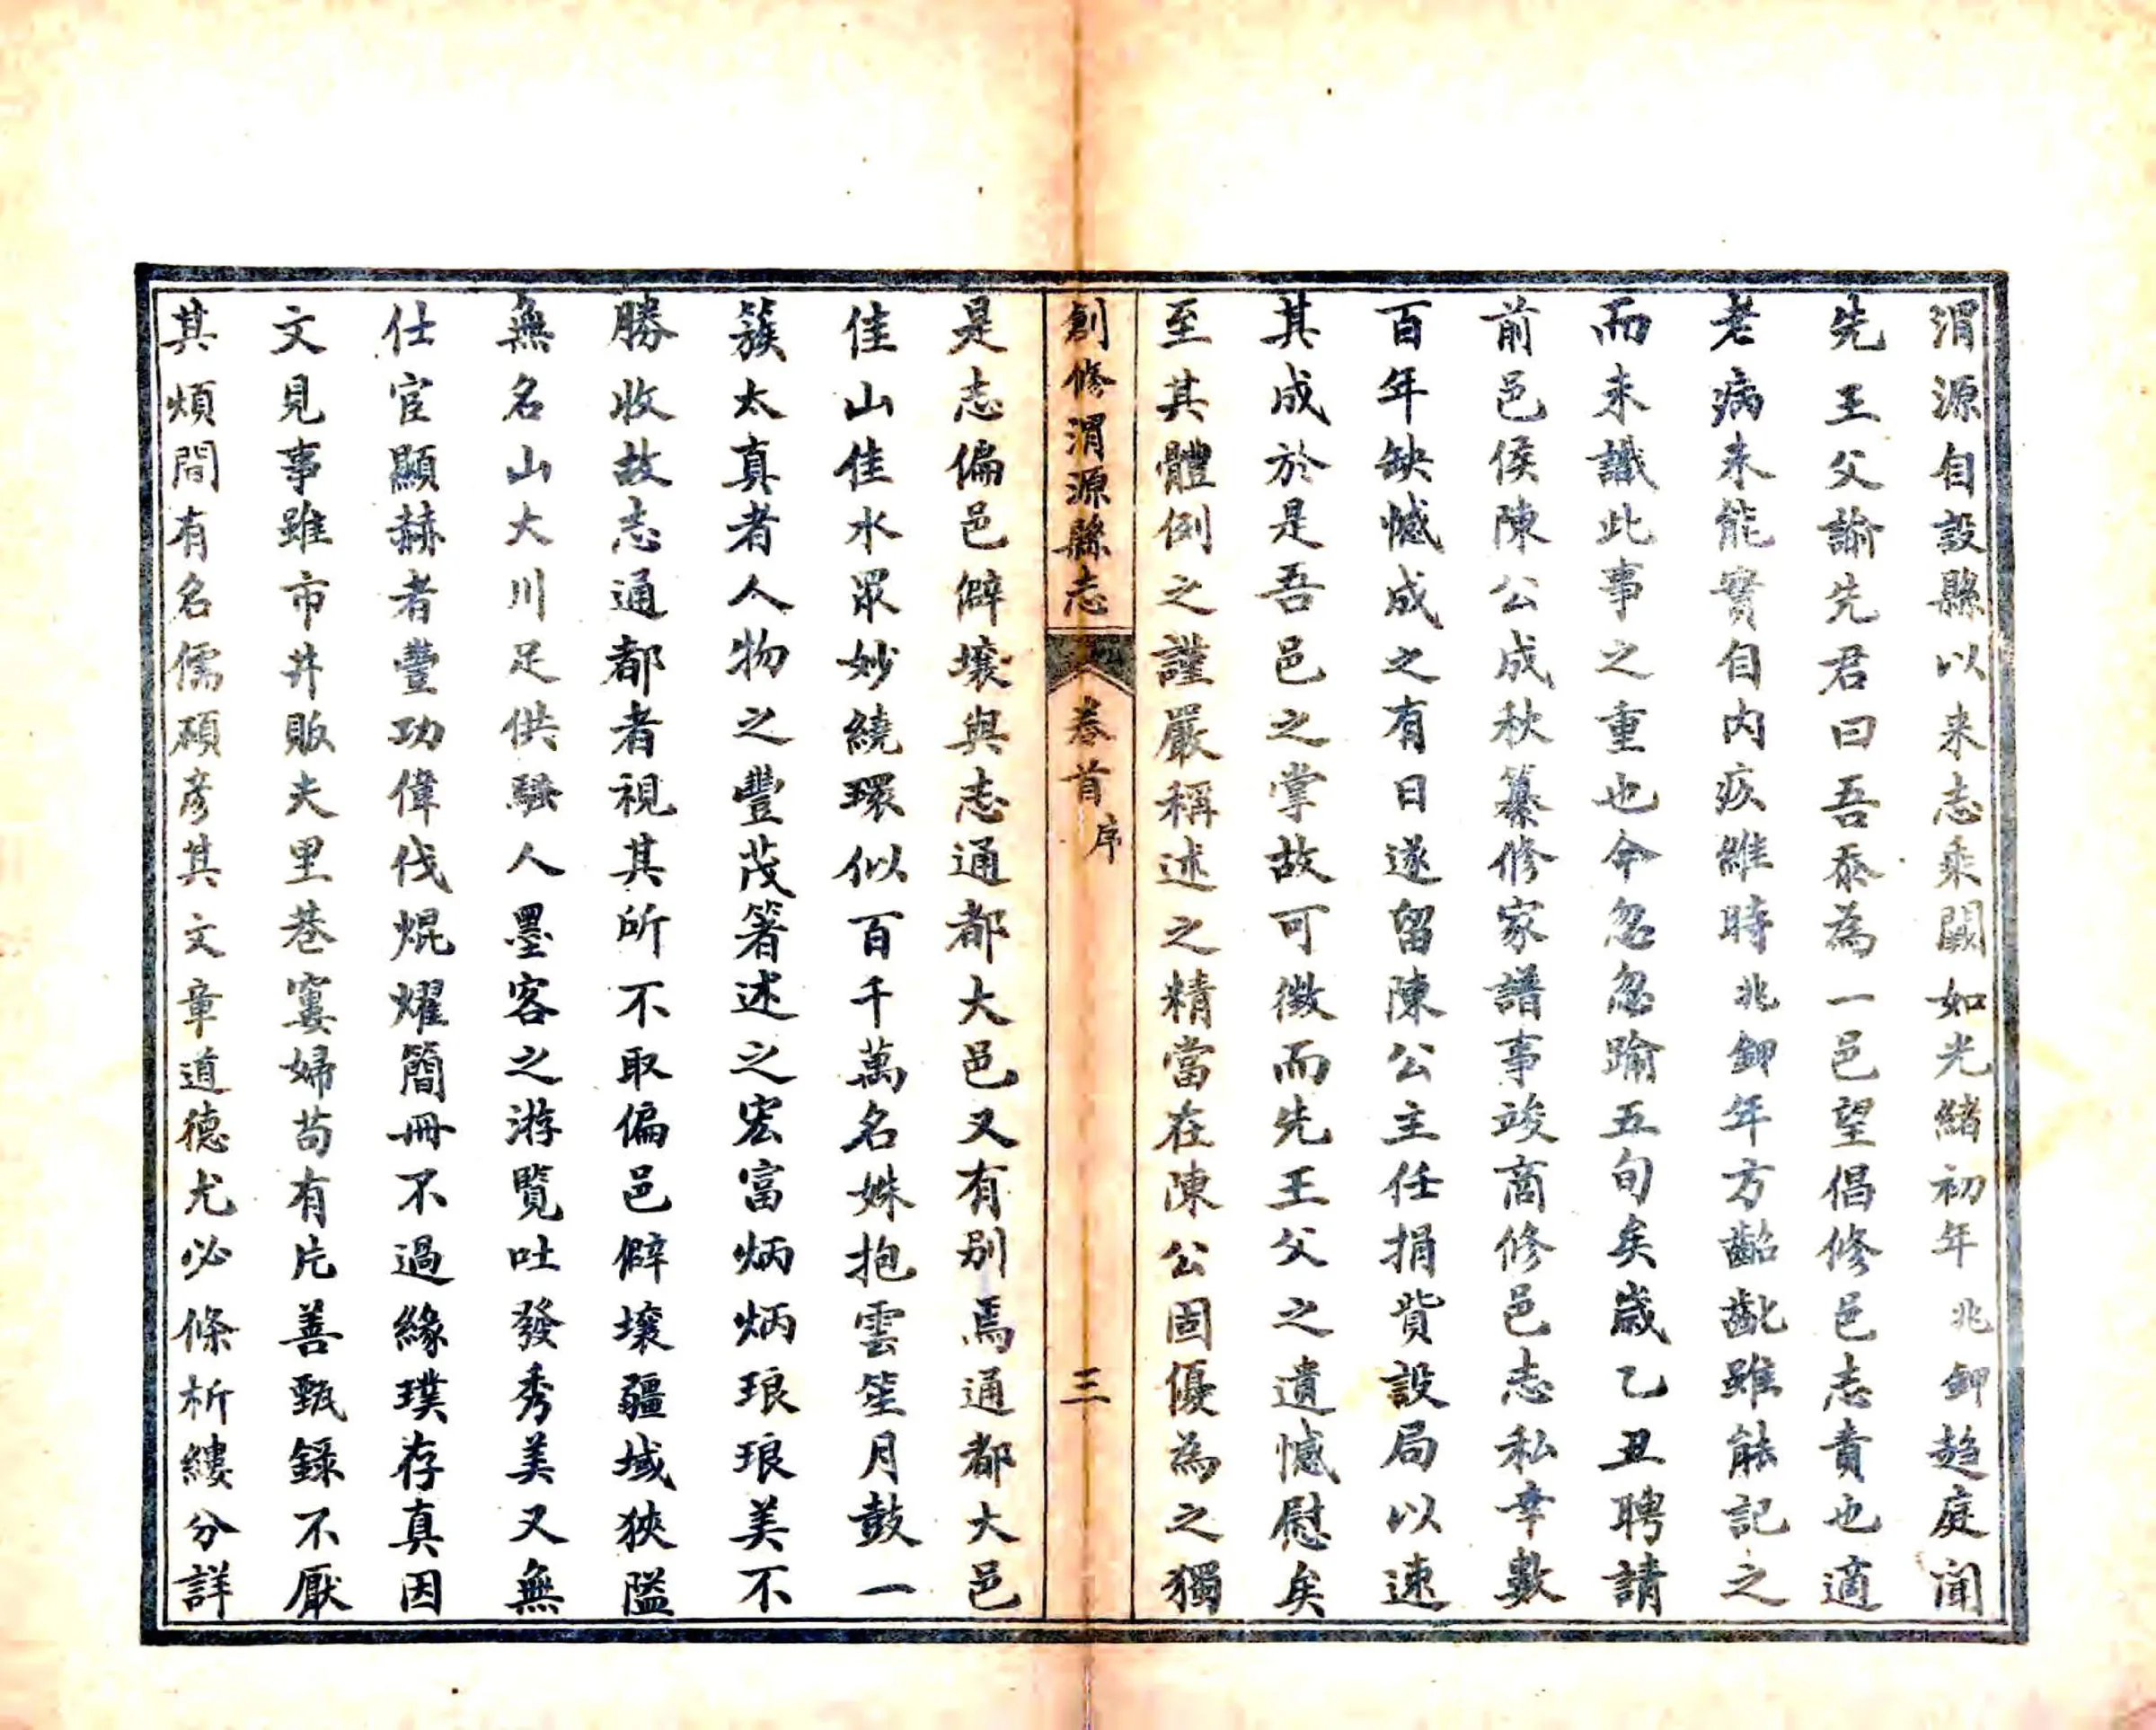 渭源自設縣以来志乘闕如光緒初年兆鉀趋庭聞
先王父諭先君曰吾忝為一邑望倡修邑志責也適
老病未能實自内疚維時兆鉀年方齠齔雖能記之
而未讖此事之重也今忽忽踰五旬矣歲乙丑聘請
前邑侯陳公成秋纂修家譜事竣商修邑志私幸數
百年缺憾成之有日遂留陳公主任捐貲設局以速
其成於是吾邑之掌故可徵而先王父之遺憾慰矣
至其體例之謹嚴稱述之精當在陳公固優為之獨
創修渭源縣志 卷首 序 三
是志偏邑僻壤與志通都大邑又有别焉通都大邑
佳山佳水眾妙繞環似百千萬名姝抱雲笙月鼓一
簇太真者人物之豐茂箸述之宏富炳炳琅琅美不
勝收故志通都者視其所不取偏邑僻壤疆域狹隘
無名山大川足供騷人墨客之游覽吐發秀美又無
仕宦顯赫者豐功偉伐焜燿簡冊不過緣璞存真因
文見事雖市井販夫里巷寠婦苟有片善甄錄不厭
其煩間有名儒碩彥其文章道德尤必條析縷分詳